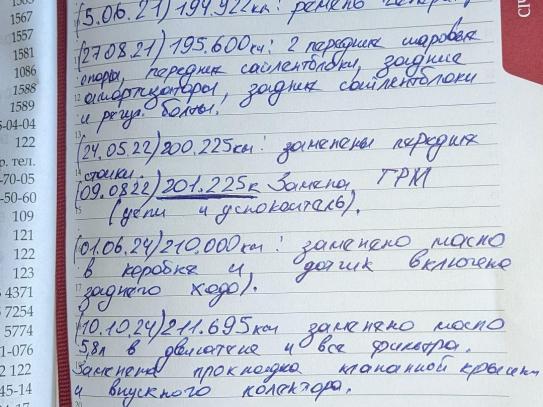 1567
1557
1581
1086
1588
1589
5-04-04
122
р. тел.
-70-05
-50-60
109
121
122
123
4371
7254
5774
1-076
2 122
45-14
(5.06.21) 194.922км: ремень
(27.08.21) 195.600км: 2 передних шаровых
опоры, передние сайлентблоки, задние
12 амортизаторы, задние сайлентблоки
и регул. болты.
13
(24.05.22) 200.225км: заменены передние
14 стойки.
(09.08.22) 201.225к Замена ГРМ
15 (цепи и успокоитель).
(01.06.24) 210.000км: заменено масло
в коробке и датчик включене
17 заднего хода).
(10.10.24) 211.695км заменено масло
5,8л в двигателе и все фильтра.
Заменена прокладка клапанной крышки
и впускного колектора.
20